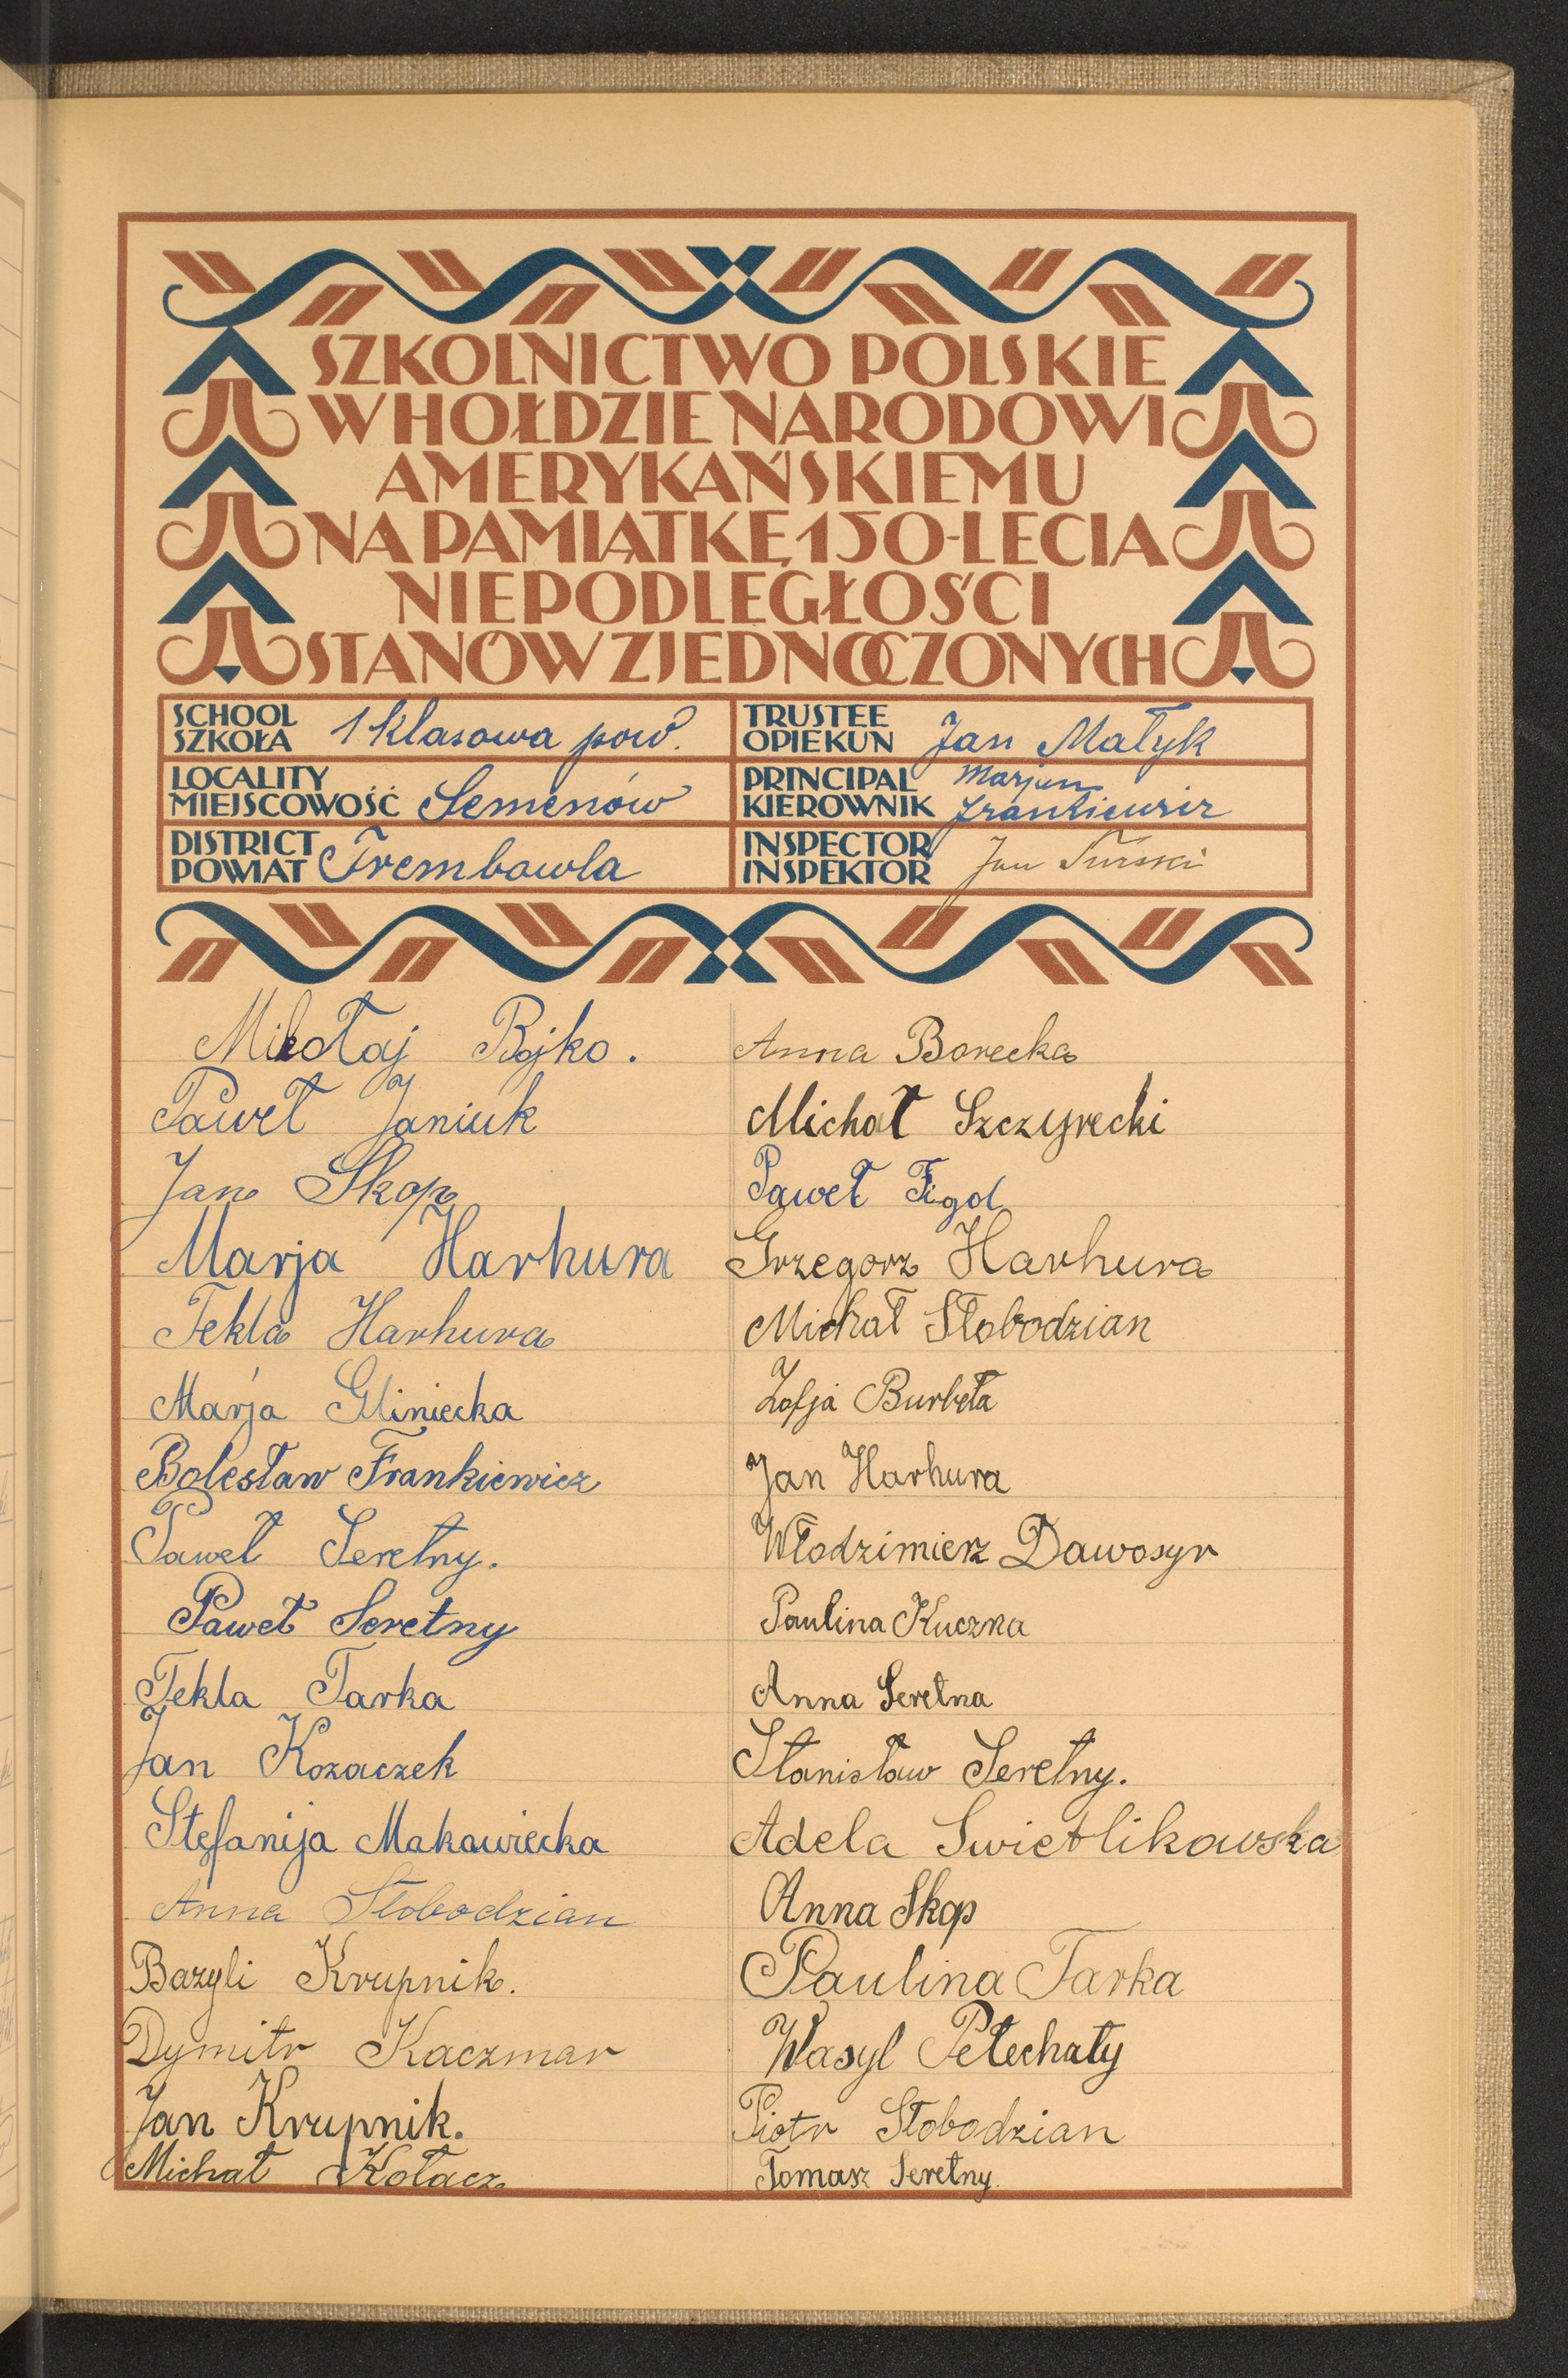 SZKOLNICTWO POLSKIE
W HOŁDZIE NARODOWI
AMERYKAŃSKIEMU
NA PAMIĄTKĘ 150-LECIA
NIEPODLEGŁOŚCI
STANÓW ZJEDNOCZONYCH
SCHOOL
SZKOŁA 1 klasowa pow.
TRUSTEE
OPIEKUN Jan Małyk
LOCALITY
MIEJSCOWOŚĆ Semenów
PRINCIPAL Marjan
KIEROWNIK Frankiewicz
DISTRICT
POWIAT Trembowla
INSPECTOR
INSPEKTOR Jan
Mikołaj Bojko.
Paweł Janiuk
Jan Skop
Marja Harhura
Tekla Harhura
Marja Gliniecka
Bolesław Frankiewicz
Paweł Seretny.
Paweł Seretny
Tekla Tarka
Jan Kozaczek
Stefanija Makawiecka
Anna Słobodzian
Bazyli Krupnik.
Dymitr Kaczmar
Jan Krupnik.
Michał Kołacz
Anna Borecka
Michał Szczyrecki
Paweł Figol
Grzegorz Harhura
Michał Słobodzian
Zofja Burbeła
Jan Harhura
Włodzimierz Dawosyr
Paulina Kuczna
Anna Seretna
Stanisław Seretny.
Adela Swietlikowska
Anna Skop
Paulina Tarka
Wasyl Pełechaty
Piotr Słobodzian
Tomasz Seretny.